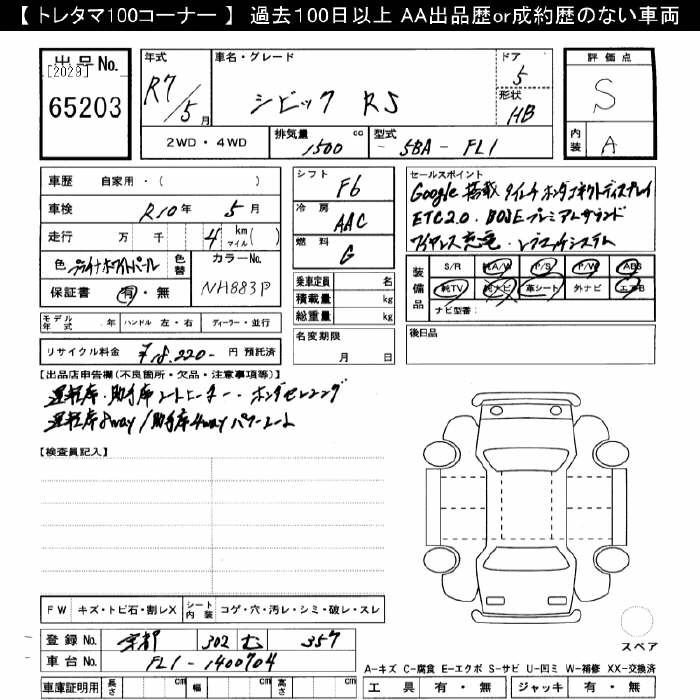 【 トレタマ100コーナー 】 過去100日以上 AA出品歴or成約歴のない車両
出品No.
[2029]
65203
年式
R7/5月
車名・グレード
シビック RS
ドア
5
形状
HB
評価点
S
内装
A
2WD・4WD
排気量
1500 cc
型式
5BA - FL1
車歴 自家用・( )
車検 R10年 5月
走行 万 千 4 km マイル ( )
色 プラチナホワイトパール
色替
カラーNo.
NH883P
保証書 有・無
シフト F6
冷房 AAC
燃料 G
乗車定員 名
積載量 kg
総重量 kg
セールスポイント
Google搭載 9インチ ホンダコネクトディスプレイ
ETC2.0. BOSEプレミアムサウンド
ワイヤレス充電.
装備品
S/R 純A/W P/S P/W ABS
純TV 純ナビ 革シート 外ナビ エアB
ナビ型番:
モデル年式 .年 ハンドル 左・右 ディーラー・並行
名変期限
月 日
後日品
リサイクル料金 ¥18,220- 円 預託済
【出品店申告欄(不良箇所・欠品・注意事項等)】
運転席・助手席シートヒーター・ホンダセンシング
運転席8way/助手席4wayパワーシート
【検査員記入】
FW キズ・トビ石・割レX シート内装 コゲ・穴・汚レ・シミ・破レ・スレ
登録No. 302 む 357
車台No. FL1-1400704
車庫証明用 長さ cm 幅 cm 高さ cm
スペア
A-キズ C-腐食 E-エクボ S-サビ U-凹ミ W-補修 XX-交換済
工具 有・無 ジャッキ 有・無